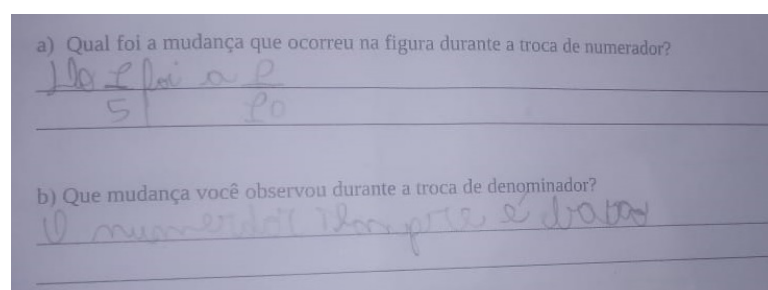 a) Qual foi a mudança que ocorreu na figura durante a troca de numerador?
foi a
5
b) Que mudança você observou durante a troca de denominador?
O numerdor sempre é